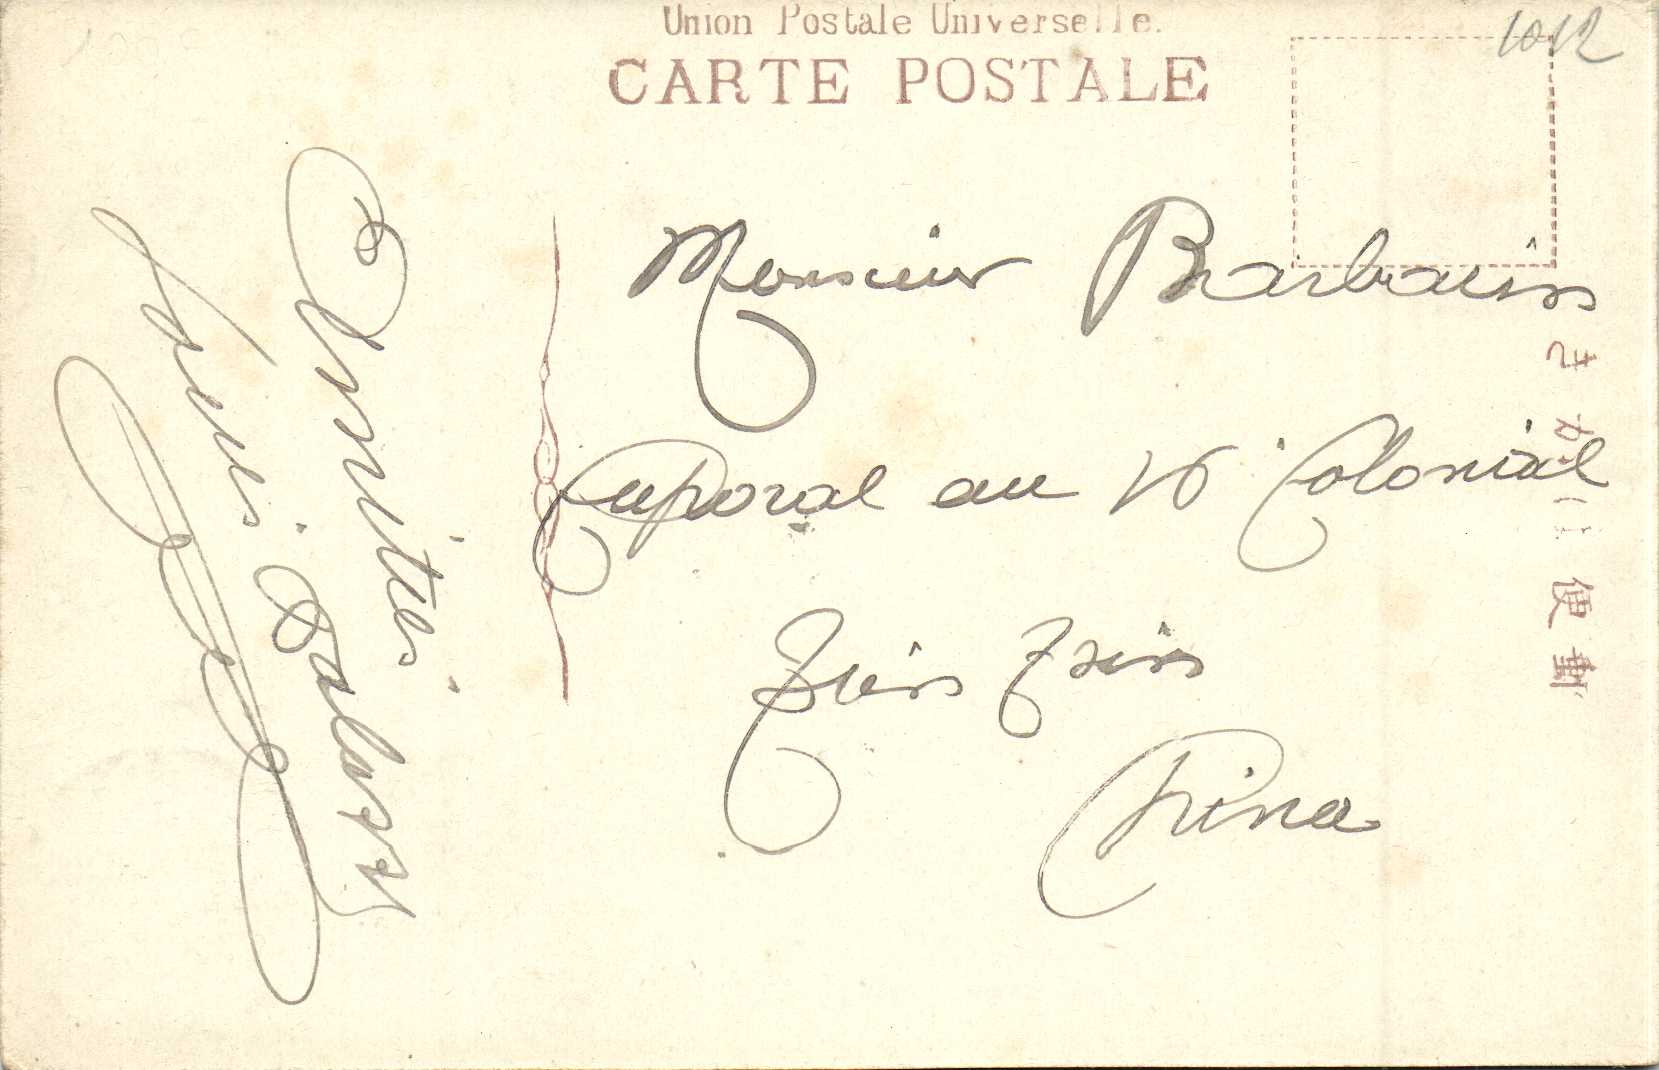 Union Postale Universelle.
CARTE POSTALE
1012
Monsieur Barbaiss
Caporal au 16 Colonial
Tien Tsin
China
Amitiés
Louis
きかは便郵